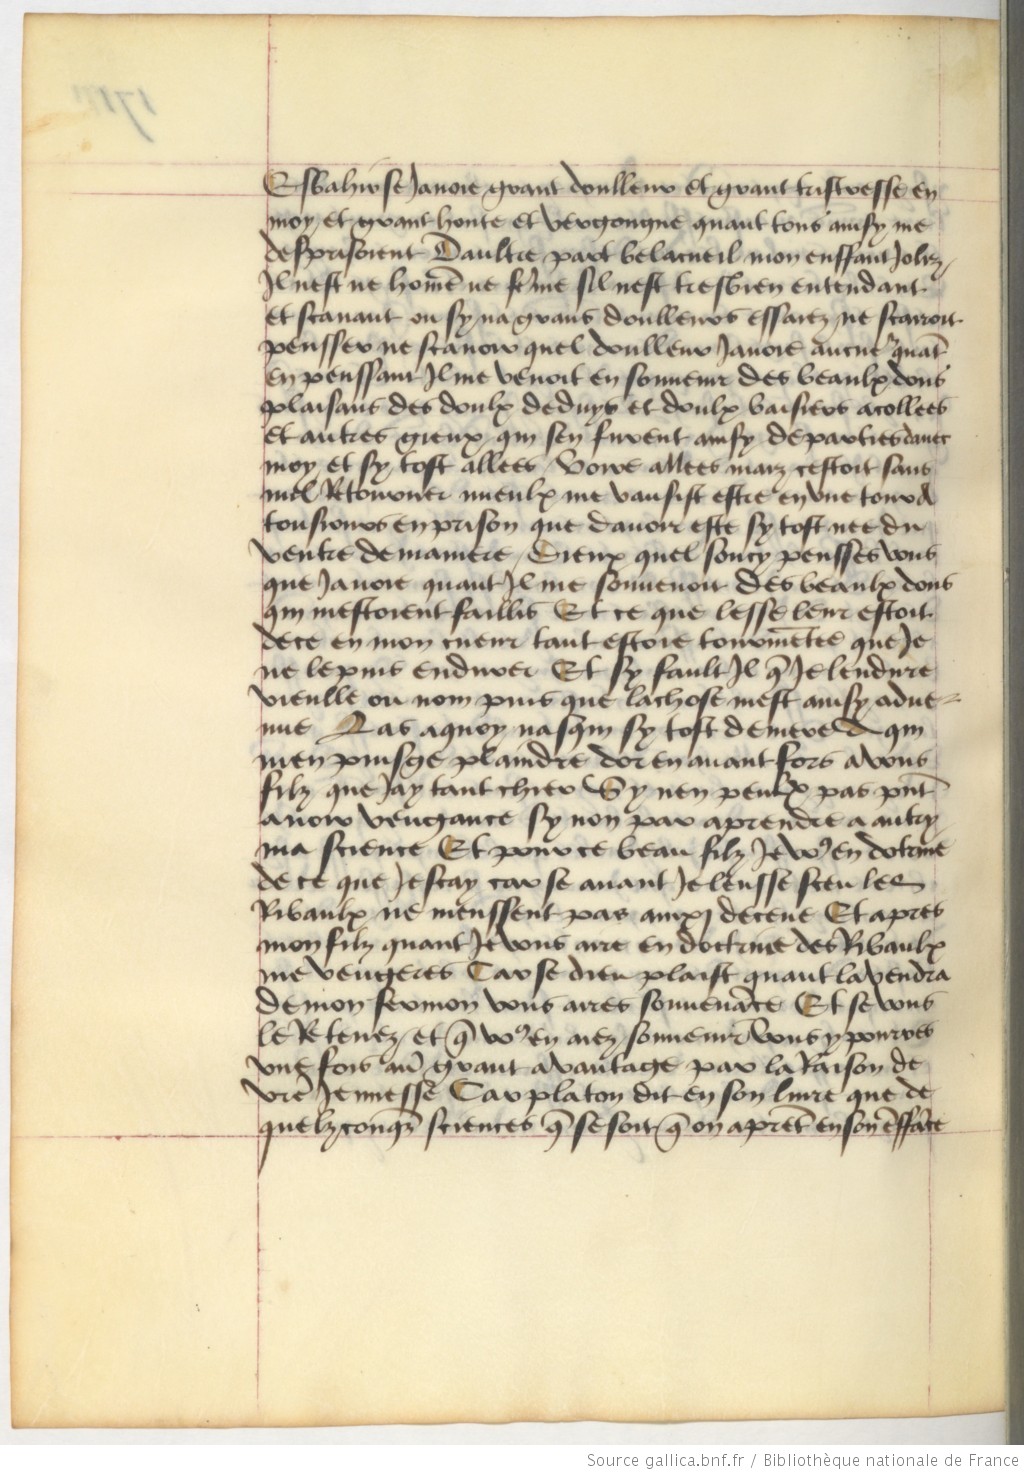 Esbahir se Javoie grant doulleur et grant tristresse en
moy et grant honte et vergongne quant tous ainsy me
desprisoient Daultre part belacueil mon enffant Joliz
Jl nest ne home ne feme sil nest tresbien entendant
et scauant ou sy na grans doulleurs essaiez ne scarroit
pensser ne scauoir quel doulleur Jauoie aucune quat
en penssant Jl me venoit en souuenir des beaulx dons
plaisans des doulx deduys et doulx baisiers acollees
et autres gieux qui sen furent ainsy departies dauec
moy et sy tost allees Voire allees maiz cestoit sans
nul Retourner mieulx me vausist estre en vne tour a
tousiours en prison que dauoir este sy tost nee du
ventre de ma mere Dieux quel soucy pensses vous
que Jauoie quant Jl me souuenoit des beaulx dons
qui mestoient faillis Et ce que lesse leur estoit
de ce en mon cueur tant estoie tourmetee que Je
ne le puis endurer Et sy fault Jl q Je lendure
vieulle ou nom puis que la chose mest ainsy adue=
nue Las a quoy nasqui sy tost de mere A qui
men puisge plaindre dorenauant fors a vous
filz que Jay tant chier Sy nen peulx pas pnt
auoir vengance sy non par aprendre a autry
ma science Et pour ce beau filz Je vo9 en dotrine
de ce que Je scay car se auant Je leusse sceu les
Ribaulx ne meussent pas ainxi deceue Et apres
mon filz quant Je vous aire en doctrine des Ribaulx
me vengeres Car se dieu plaist quant la vendra
de mon sermon vous aires souuenace Et se vous
le Retenez et q vo9 en aiez souuenir vous y pourres
vne fois auoir grant auantage par la Raison de
vre Jeunesse Car platon dit en son liure que de
quelzconqz sciences q se soit q on apret en son efface
Source gallica.bnf.fr / Bibliothèque nationale de France